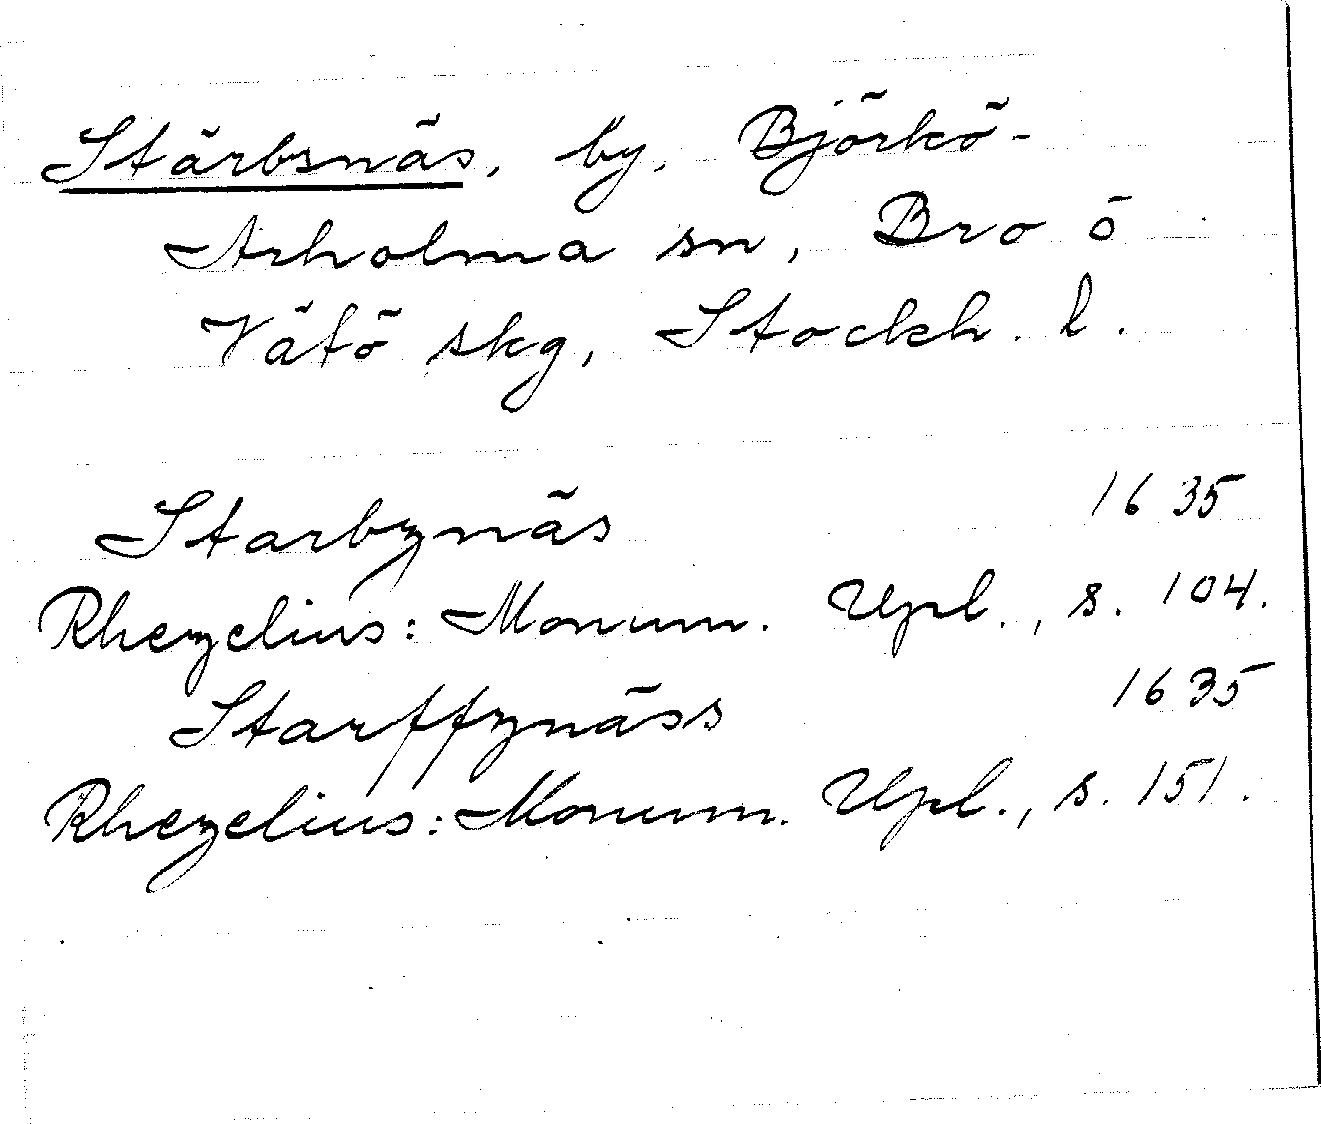 Stärbsnäs, by, Björkö-
Arholma sn, Bro o
Vätö skg, Stockh. l.
Starbznäs 1635
Rhezelius: Monum. Upl., s. 104.
Starffznäss 1635
Rhezelius: Monum. Upl., s. 151.